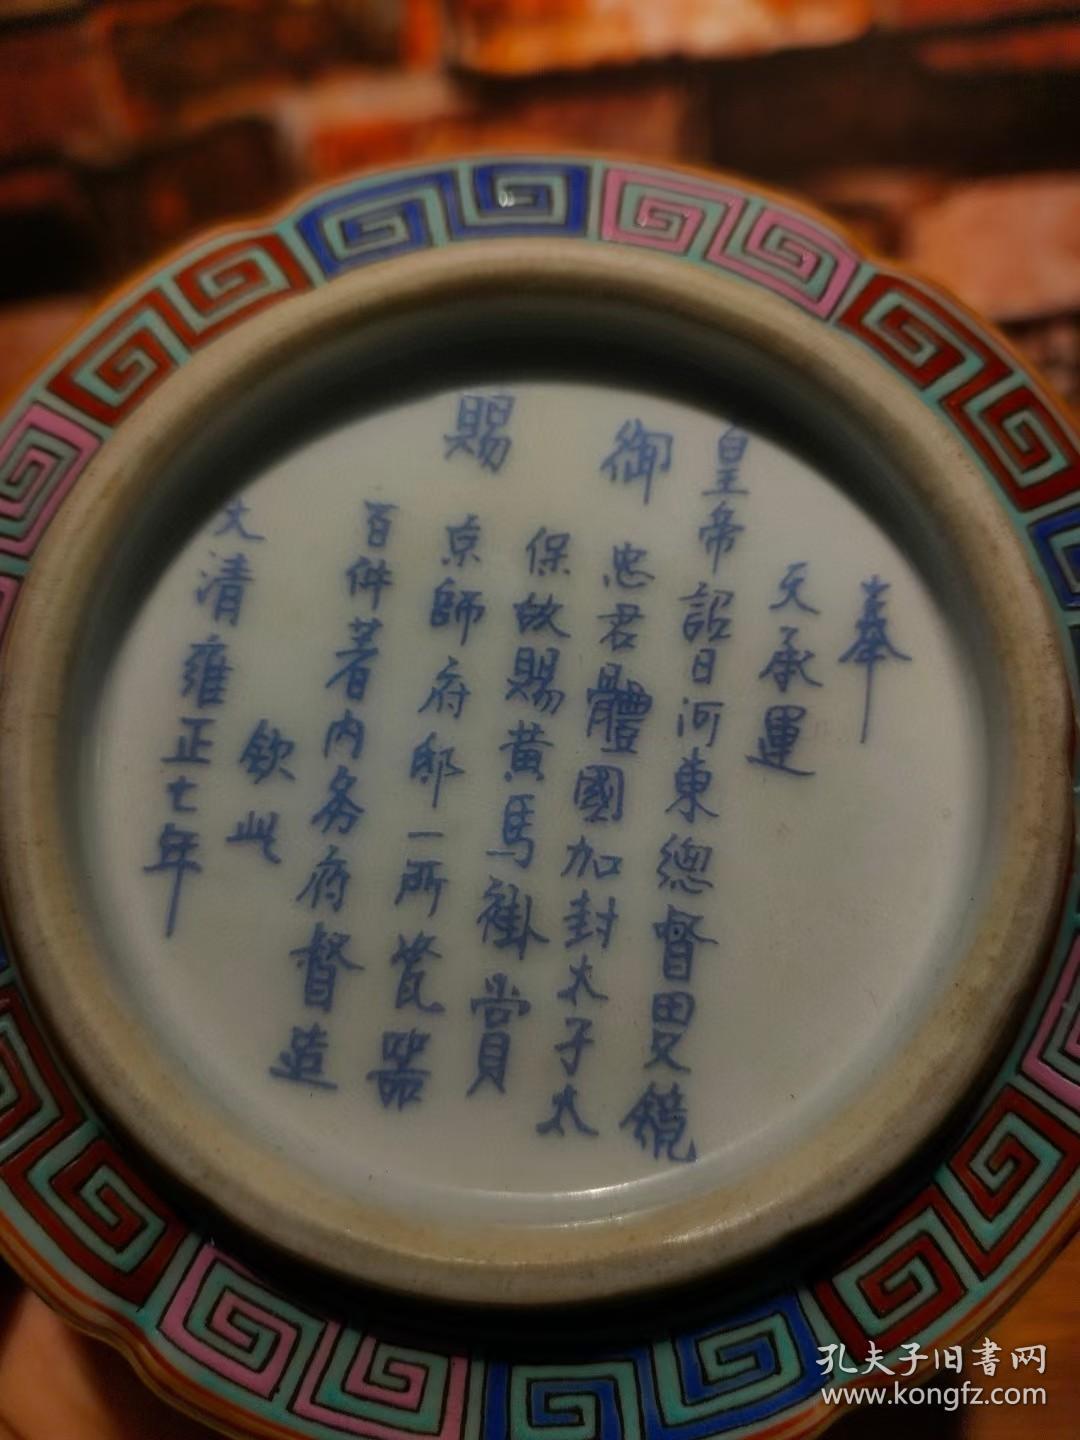 奉
天承運
皇帝詔曰河東總督田文鏡
御忠君體國加封太子太
保故賜黃馬褂賞
賜京師府邸一所瓷器
百件著内务府督造
欽此
大清雍正七年
孔夫子旧書网
www.kongfz.com